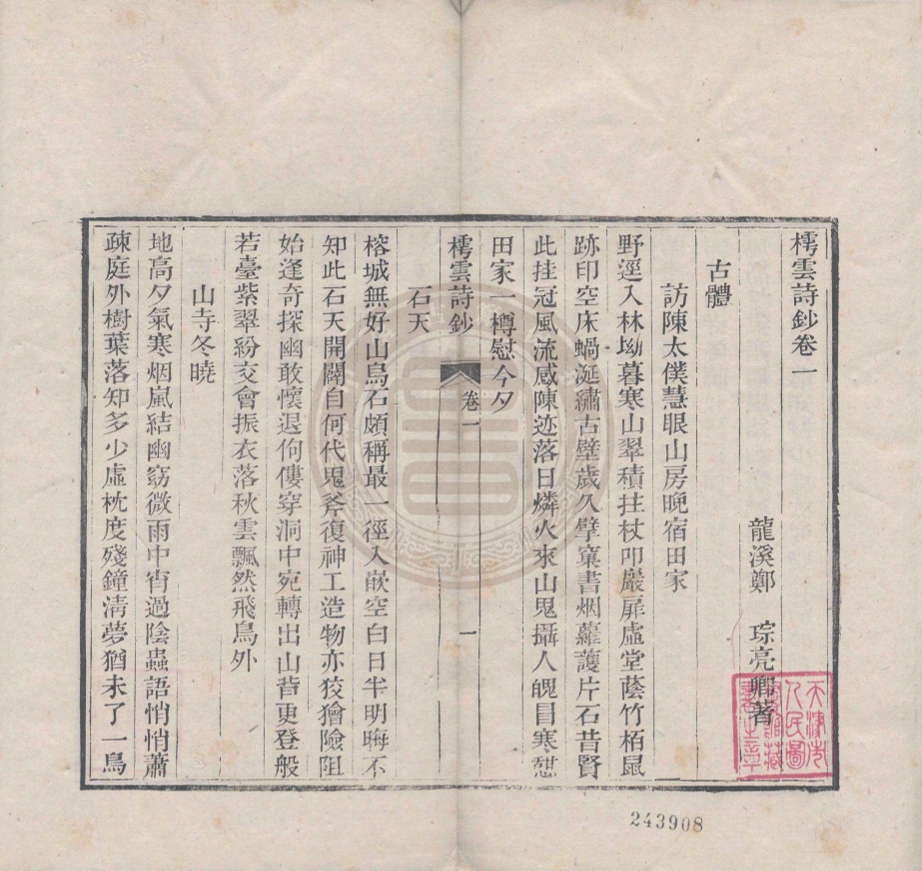 樗雲詩鈔卷一
龍溪鄭 琮亮卿著
古體
訪陳太僕慧眼山房晚宿田家
野逕入林坳暮寒山翠積拄杖叩巖扉虛堂蔭竹栢鼠
跡印空床蝸涎繡古壁歲久擘窠書烟蘿護片石昔賢
此挂冠風流感陳迹落日燐火來山鬼攝人魄冒寒憇
田家一樽慰今夕
樗雲詩鈔 卷一 一
石天
榕城無好山烏石頗稱最一徑入嵌空白日半明晦不
知此石天開闢自何代鬼斧復神工造物亦狡獪險阻
始逢奇探幽敢懷退佝僂穿洞中宛轉出山背更登般
若臺紫翠紛交會振衣落秋雲飄然飛鳥外
山寺冬曉
地高夕氣寒烟嵐結幽窈微雨中宵過陰蟲語悄悄蕭
疎庭外樹葉落知多少虛枕度殘鐘清夢猶未了一鳥
天津市
人民圖
書館藏
書之章
243908